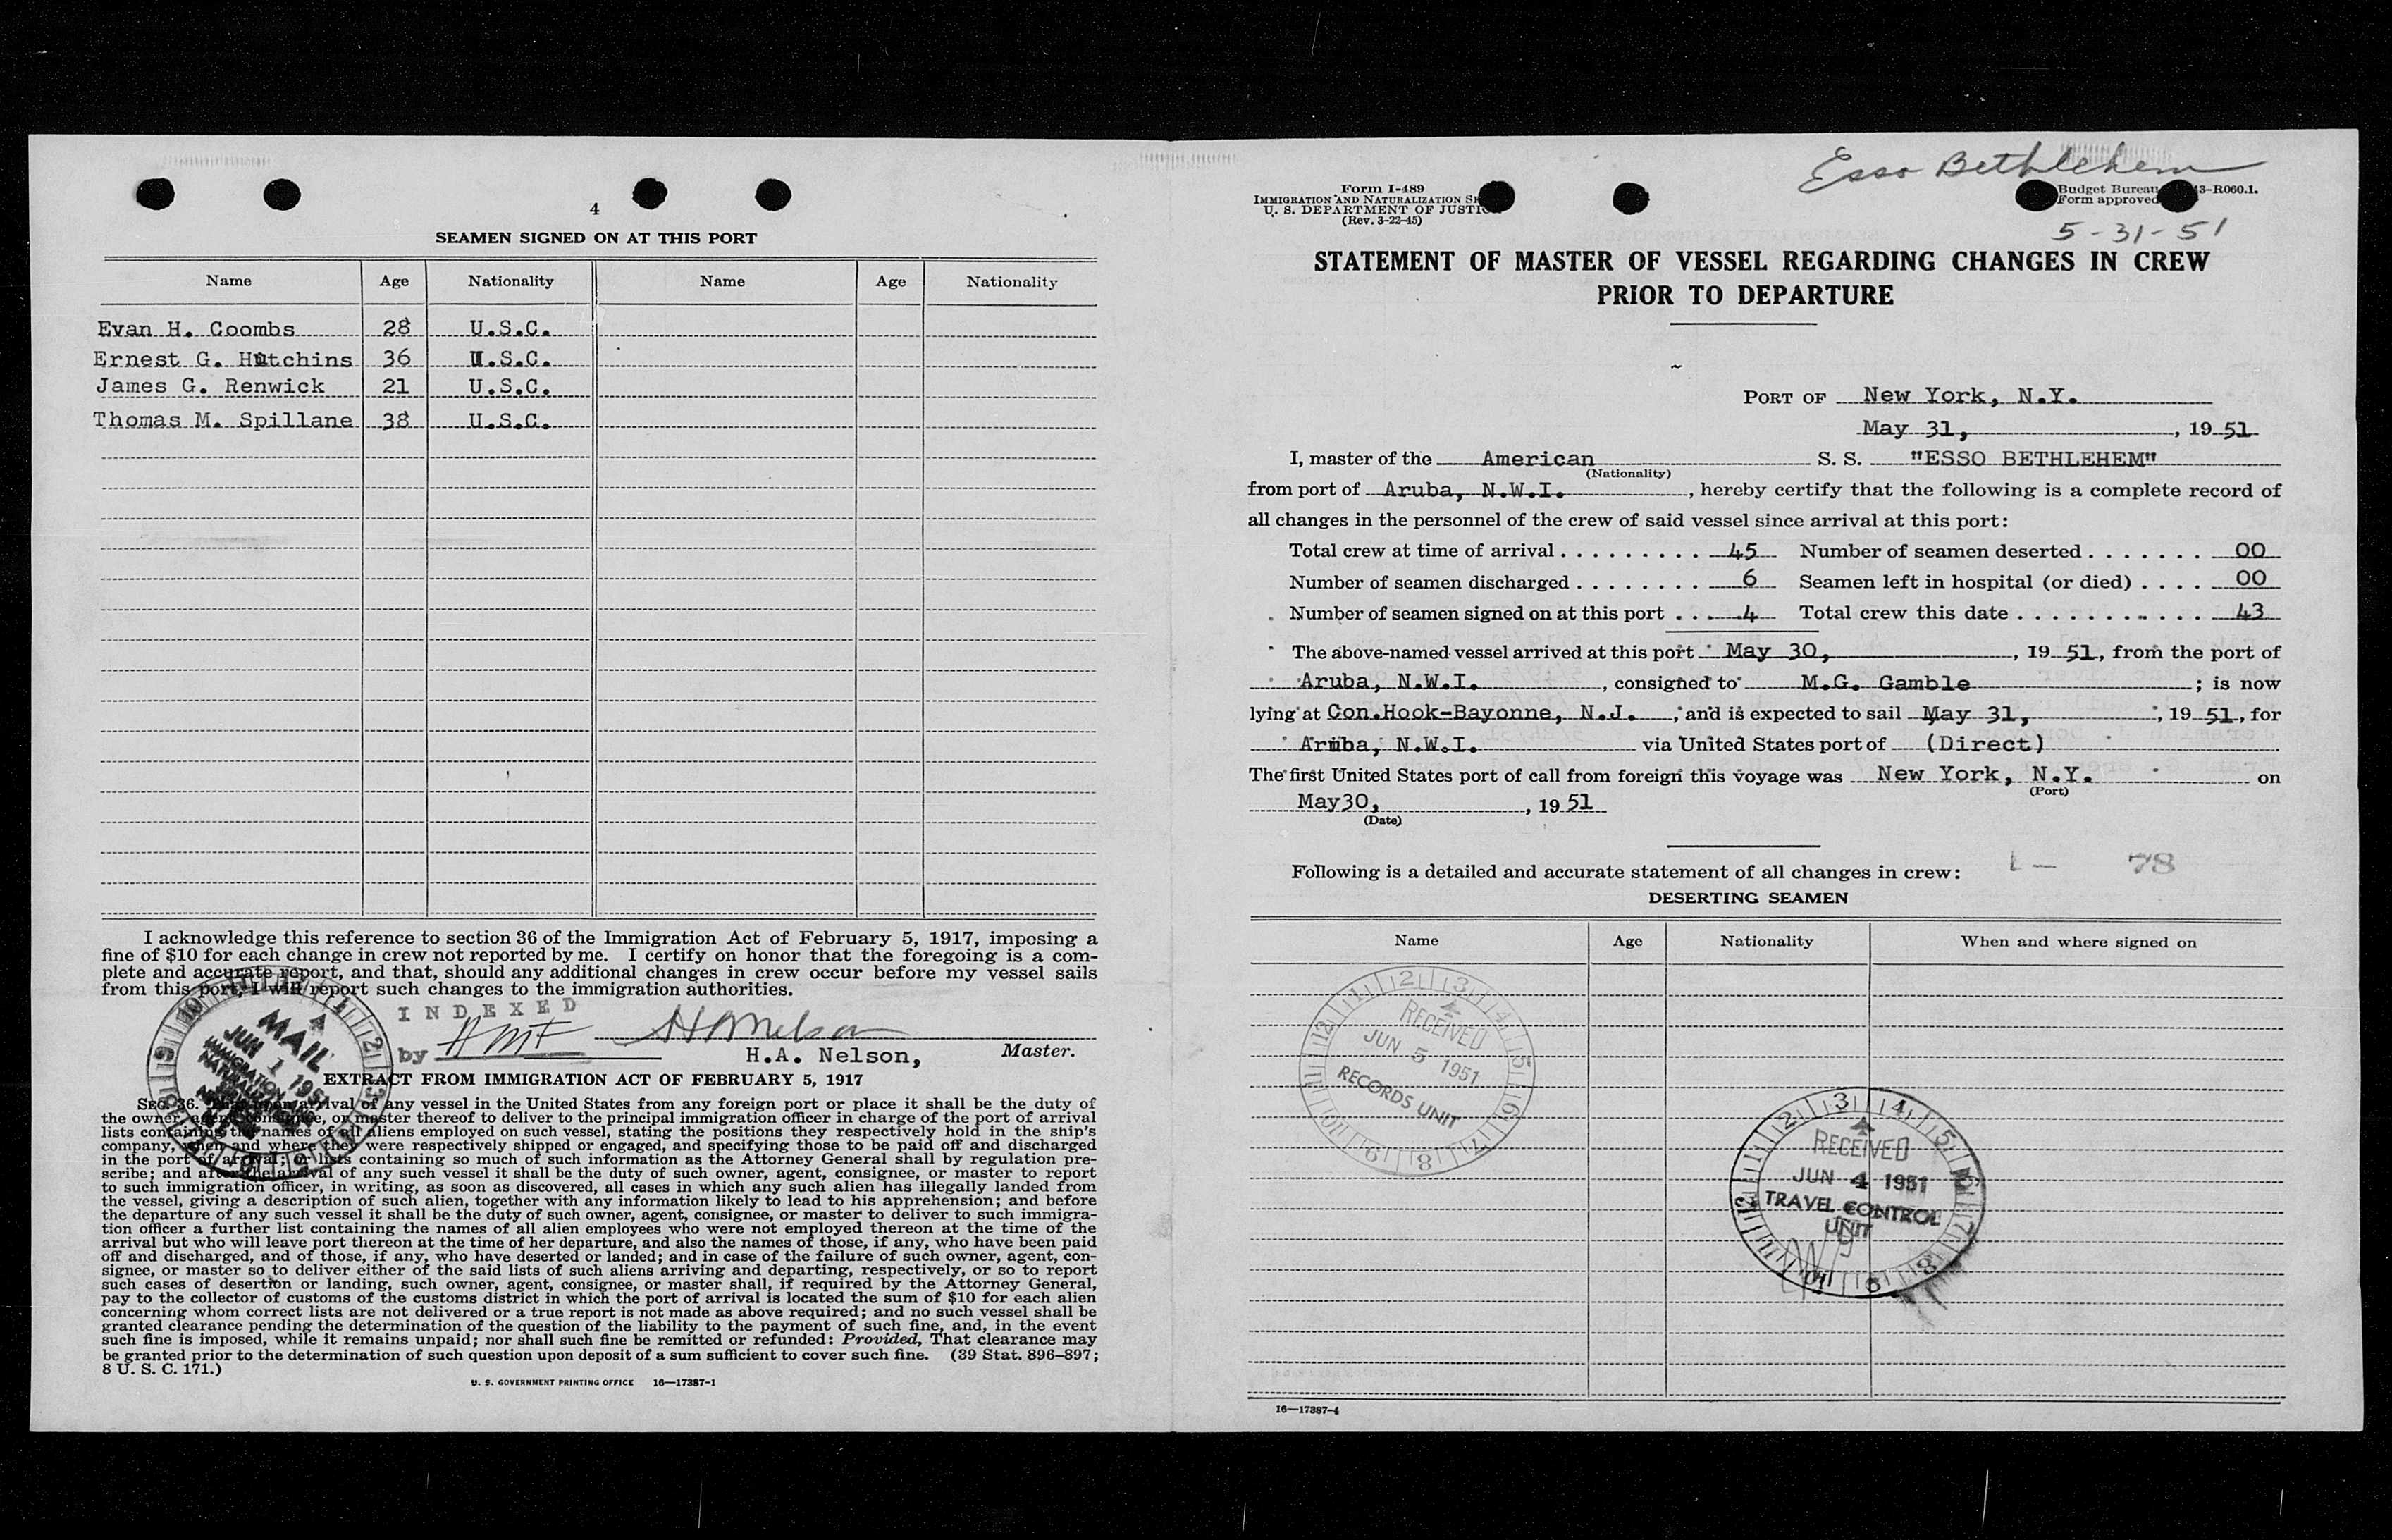 4
SEAMEN SIGNED ON AT THIS PORT
Name Age Nationality Name Age Nationality
Evan H. Coombs 28 U.S.C.
Ernest G. Hutchins 36 U.S.C.
James G. Renwick 21 U.S.C.
Thomas M. Spillane 38 U.S.C.
I acknowledge this reference to section 36 of the Immigration Act of February 5, 1917, imposing a
fine of $10 for each change in crew not reported by me. I certify on honor that the foregoing is a com-
plete and accurate report, and that, should any additional changes in crew occur before my vessel sails
from this port, I will report such changes to the immigration authorities.
INDEXED
by HMF HANelson
H.A. Nelson, Master.
MAIL
JUN 1 1951
IMMIGRATION
EXTRACT FROM IMMIGRATION ACT OF FEBRUARY 5, 1917
SEC. 36. That upon arrival of any vessel in the United States from any foreign port or place it shall be the duty of
the owner, agent, consignee, or master thereof to deliver to the principal immigration officer in charge of the port of arrival
lists containing the names of all aliens employed on such vessel, stating the positions they respectively hold in the ship's
company, when and where they were respectively shipped or engaged, and specifying those to be paid off and discharged
in the port of arrival; or lists containing so much of such information as the Attorney General shall by regulation pre-
scribe; and after the arrival of any such vessel it shall be the duty of such owner, agent, consignee, or master to report
to such immigration officer, in writing, as soon as discovered, all cases in which any such alien has illegally landed from
the vessel, giving a description of such alien, together with any information likely to lead to his apprehension; and before
the departure of any such vessel it shall be the duty of such owner, agent, consignee, or master to deliver to such immigra-
tion officer a further list containing the names of all alien employees who were not employed thereon at the time of the
arrival but who will leave port thereon at the time of her departure, and also the names of those, if any, who have been paid
off and discharged, and of those, if any, who have deserted or landed; and in case of the failure of such owner, agent, con-
signee, or master so to deliver either of the said lists of such aliens arriving and departing, respectively, or so to report
such cases of desertion or landing, such owner, agent, consignee, or master shall, if required by the Attorney General,
pay to the collector of customs of the customs district in which the port of arrival is located the sum of $10 for each alien
concerning whom correct lists are not delivered or a true report is not made as above required; and no such vessel shall be
granted clearance pending the determination of the question of the liability to the payment of such fine, and, in the event
such fine is imposed, while it remains unpaid; nor shall such fine be remitted or refunded: Provided, That clearance may
be granted prior to the determination of such question upon deposit of a sum sufficient to cover such fine. (39 Stat. 896–897;
8 U. S. C. 171.)
U. S. GOVERNMENT PRINTING OFFICE 16—17387-1
Esso Bethlehem
Form I-489
IMMIGRATION AND NATURALIZATION
U. S. DEPARTMENT OF JUSTICE
(Rev. 3-22-45)
Budget Bureau 43-R060.1.
Form approved
5-31-51
STATEMENT OF MASTER OF VESSEL REGARDING CHANGES IN CREW
PRIOR TO DEPARTURE
PORT OF New York, N.Y.
May 31, , 19 51
I, master of the American S. S. "ESSO BETHLEHEM"
(Nationality)
from port of Aruba, N.W.I. , hereby certify that the following is a complete record of
all changes in the personnel of the crew of said vessel since arrival at this port:
Total crew at time of arrival . . . . . . . . . 45 Number of seamen deserted . . . . . . . 00
Number of seamen discharged . . . . . . . . 6 Seamen left in hospital (or died) . . . . 00
Number of seamen signed on at this port . . . 4 Total crew this date . . . . . . . . . . . 43
The above-named vessel arrived at this port May 30, , 19 51, from the port of
Aruba, N.W.I. , consigned to M.G. Gamble ; is now
lying at Con.Hook-Bayonne, N.J. , and is expected to sail May 31, , 19 51, for
Aruba, N.W.I. via United States port of (Direct)
The first United States port of call from foreign this voyage was New York, N.Y. on
(Port)
May30, , 19 51
(Date)
Following is a detailed and accurate statement of all changes in crew: 1 — 78
DESERTING SEAMEN
Name Age Nationality When and where signed on
RECEIVED
JUN 5 1951
RECORDS UNIT
RECEIVED
JUN 4 1951
TRAVEL CONTROL
UNIT
16—17387-4